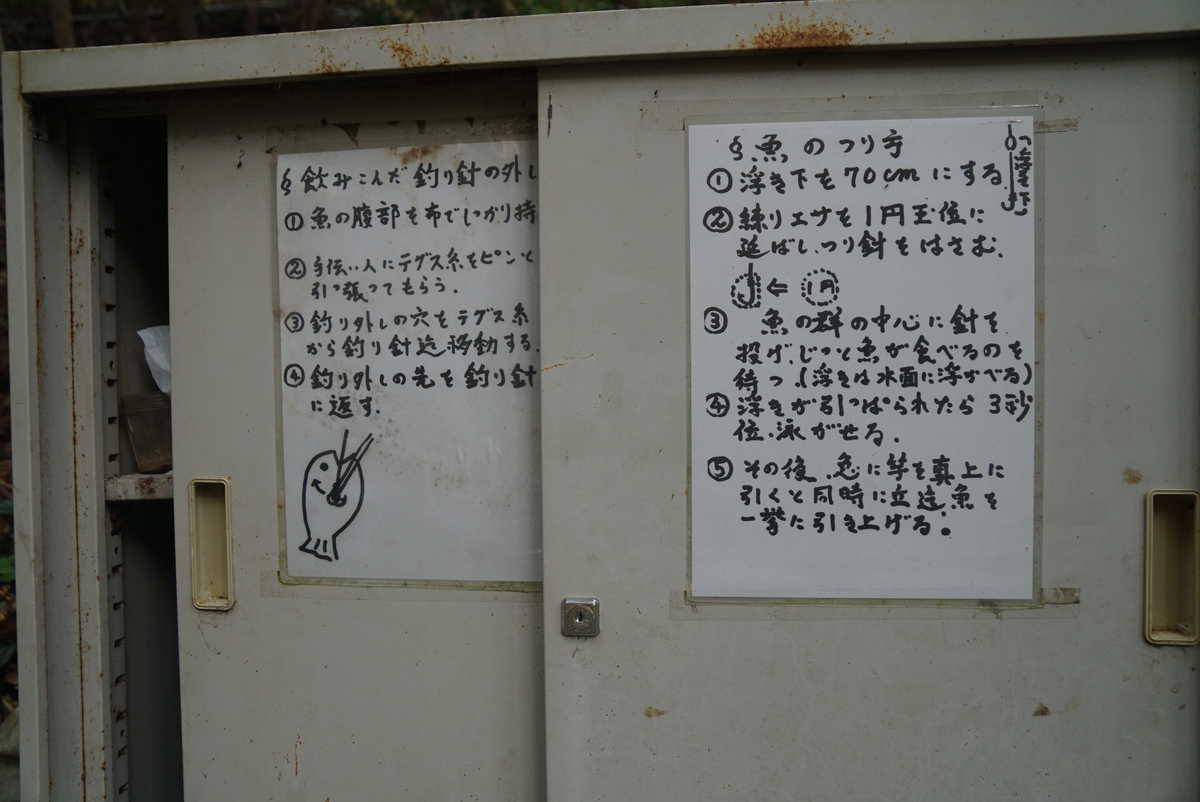 § 飲みこんだ釣り針の外し
① 魚の腹部を布でしっかり持
② 手伝い人にテグス糸をピンと
引っ張ってもらう.
③ 釣り外しの穴をテグス糸
から釣り針迄移動する.
④ 釣り外しの先を釣り針
に返す.
§ 魚のつり方
① 浮き下を70cmにする
「浮き下」
② 練りエサを1円玉位に
延ばし、つり針をはさむ.
⇐ 1円
③ 魚の群の中心に針を
投げ、じっと魚が食べるのを
待つ.(浮きは水面に浮かべる)
④ 浮きが引っぱられたら3秒
位、泳がせる.
⑤ その後、急に竿を真上に
引くと同時に立迄魚を
一挙に引き上げる。